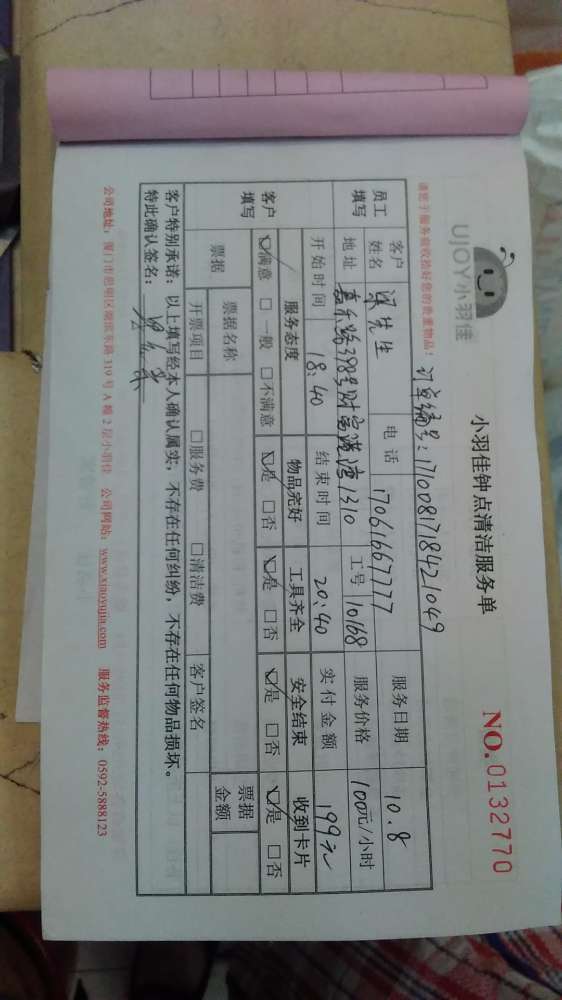 UJOY小羽佳
小羽佳钟点清洁服务单
NO.0132770
请您于服务前收拾好您的贵重物品！
订单编号：1710081718421049
员工填写
客户姓名
先生
电话
17061667777
服务日期
10.8
地址
嘉禾路398号财富港湾1310
工号
10168
服务价格
100元/小时
开始时间
18:40
结束时间
20:40
实付金额
199元
客户填写
服务态度 物品完好 工具齐全 安全结束 收到卡片
☑满意 □一般 □不满意 ☑是 □否 ☑是 □否 ☑是 □否 ☑是 □否
票据
票据名称
票据金额
开票项目
□服务费 □清洁费
客户签名
客户特别承诺：以上填写经本人确认属实，不存在任何纠纷，不存在任何物品损坏。
特此确认签名：
公司地址：厦门市思明区湖滨东路319号A幢2层小羽佳 公司网站：www.xiaoyujia.com 服务监督热线：0592-5888123